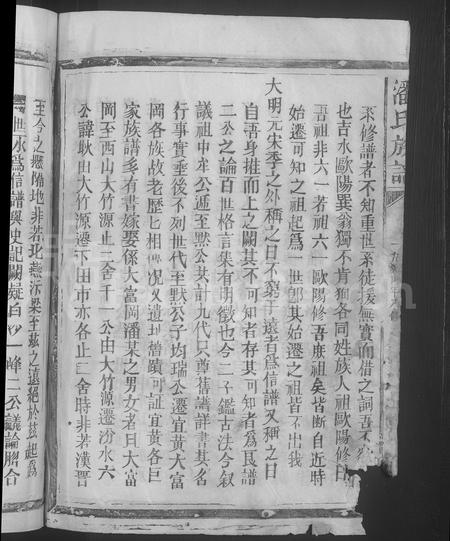 潘氏族譜
來修譜者不知重世系徒援無實而借之詞吾不
也吉水歐陽巽翁獨不肯狥各同姓族人祖歐陽修曰
吾祖非六一若祖六一歐陽修吾庶祖矣皆斷自近時
始遷可知之祖起爲一世郎其始遷之祖皆不出我
大明元宋季之外稱之曰不窮于遠者爲信譜又稱之曰
自吾身推而上之闕其不可知者存其可知者爲良譜
二公之論百世格言集有明徵也今二子鑑古法今叙
議祖中牟公遞至默公共計九代只尊舊譜詳書其名
行事實垂後不列世代至默公子均瑞公遷宜黃大富
岡各族故老歷匕相傳況又遺址舊蹟可証宜黃各巨
家族譜多有書嫁娶係大富岡潘某之男女者且大富
岡至西山大竹源止二舍千一公由大竹源遷汾水六
公諱耿田大竹源遷下田市亦各止二舍時非若漢晋
至今之遐隔地非若北燕汴梁至茲之遠絕於茲起爲
一世永爲信譜與史記闕疑百
一峰二公議論脗合